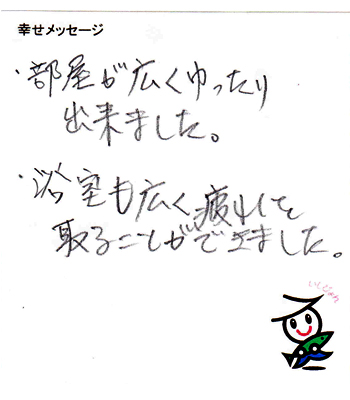 幸せメッセージ
・部屋が広くゆったり
出来ました。
・浴室も広く疲れを
取ることができました。